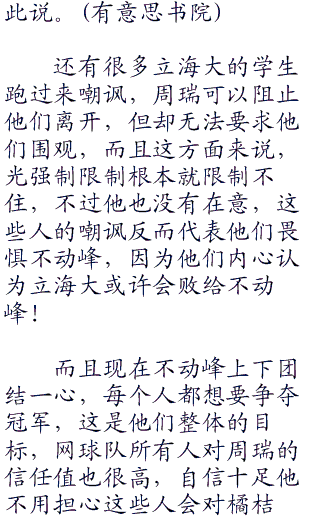 此说。(有意思书院)
还有很多立海大的学生
跑过来嘲讽，周瑞可以阻止
他们离开，但却无法要求他
们围观，而且这方面来说，
光强制限制根本就限制不
住，不过他也没有在意，这
些人的嘲讽反而代表他们畏
惧不动峰，因为他们内心认
为立海大或许会败给不动
峰！
而且现在不动峰上下团
结一心，每个人都想要争夺
冠军，这是他们整体的目
标，网球队所有人对周瑞的
信任值也很高，自信十足他
不用担心这些人会对橘桔